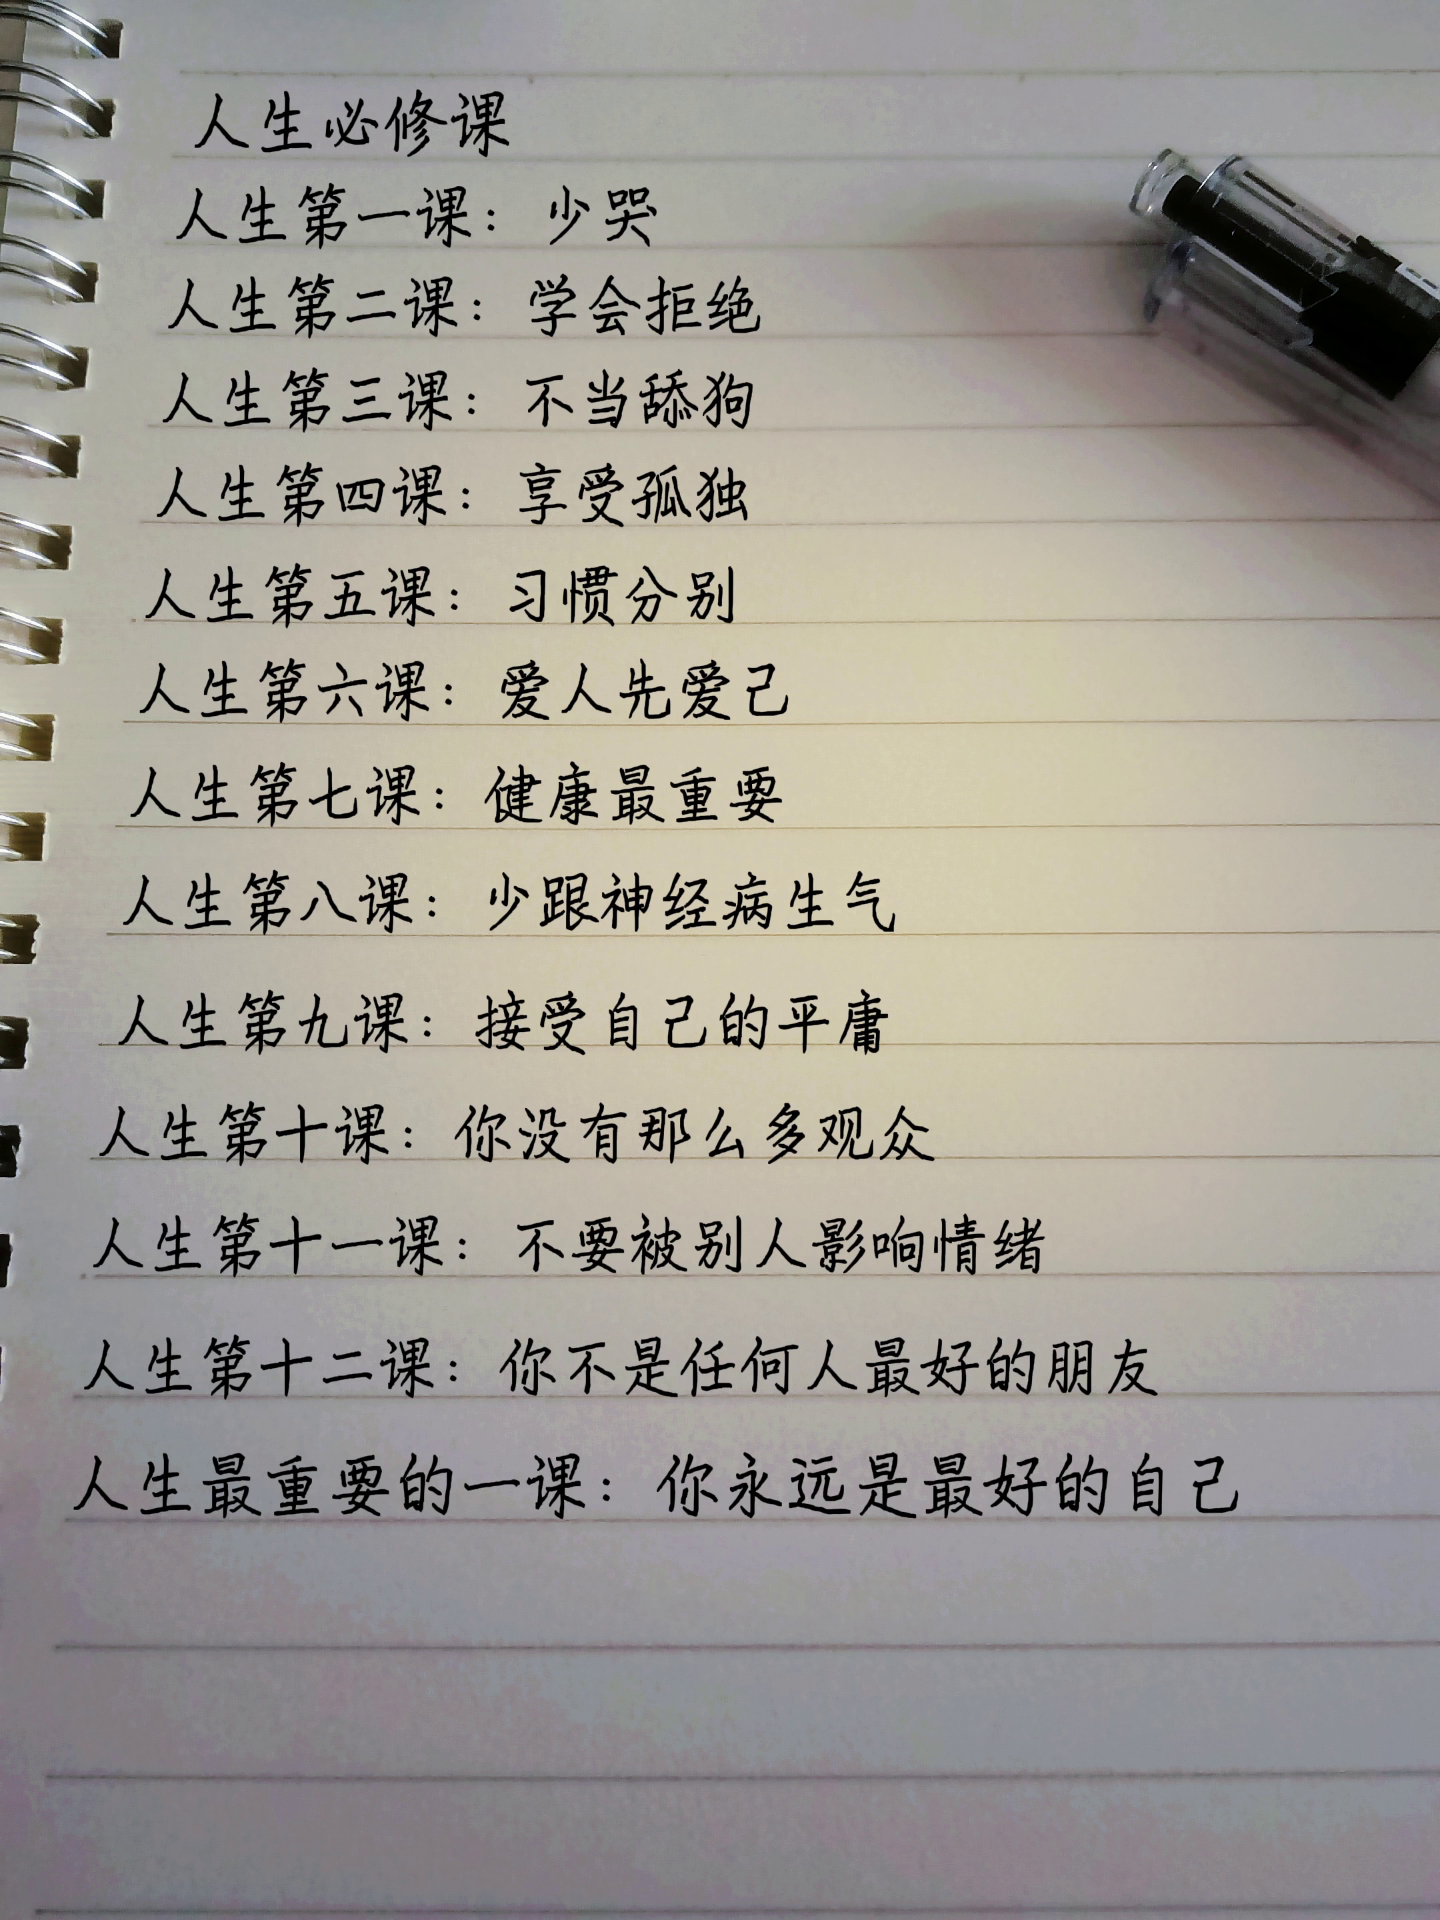 人生必修课
人生第一课：少哭
人生第二课：学会拒绝
人生第三课：不当舔狗
人生第四课：享受孤独
人生第五课：习惯分别
人生第六课：爱人先爱己
人生第七课：健康最重要
人生第八课：少跟神经病生气
人生第九课：接受自己的平庸
人生第十课：你没有那么多观众
人生第十一课：不要被别人影响情绪
人生第十二课：你不是任何人最好的朋友
人生最重要的一课：你永远是最好的自己